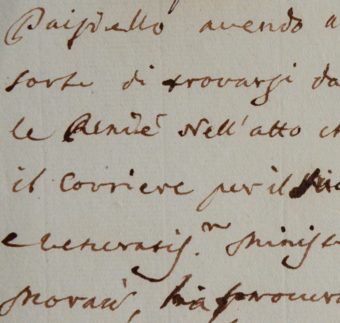 Paisiello avendo a
sorte di trovarsi da
le nell'atto ch
il Corriere per il
e veneratis.ᵐ Minist
ha procura